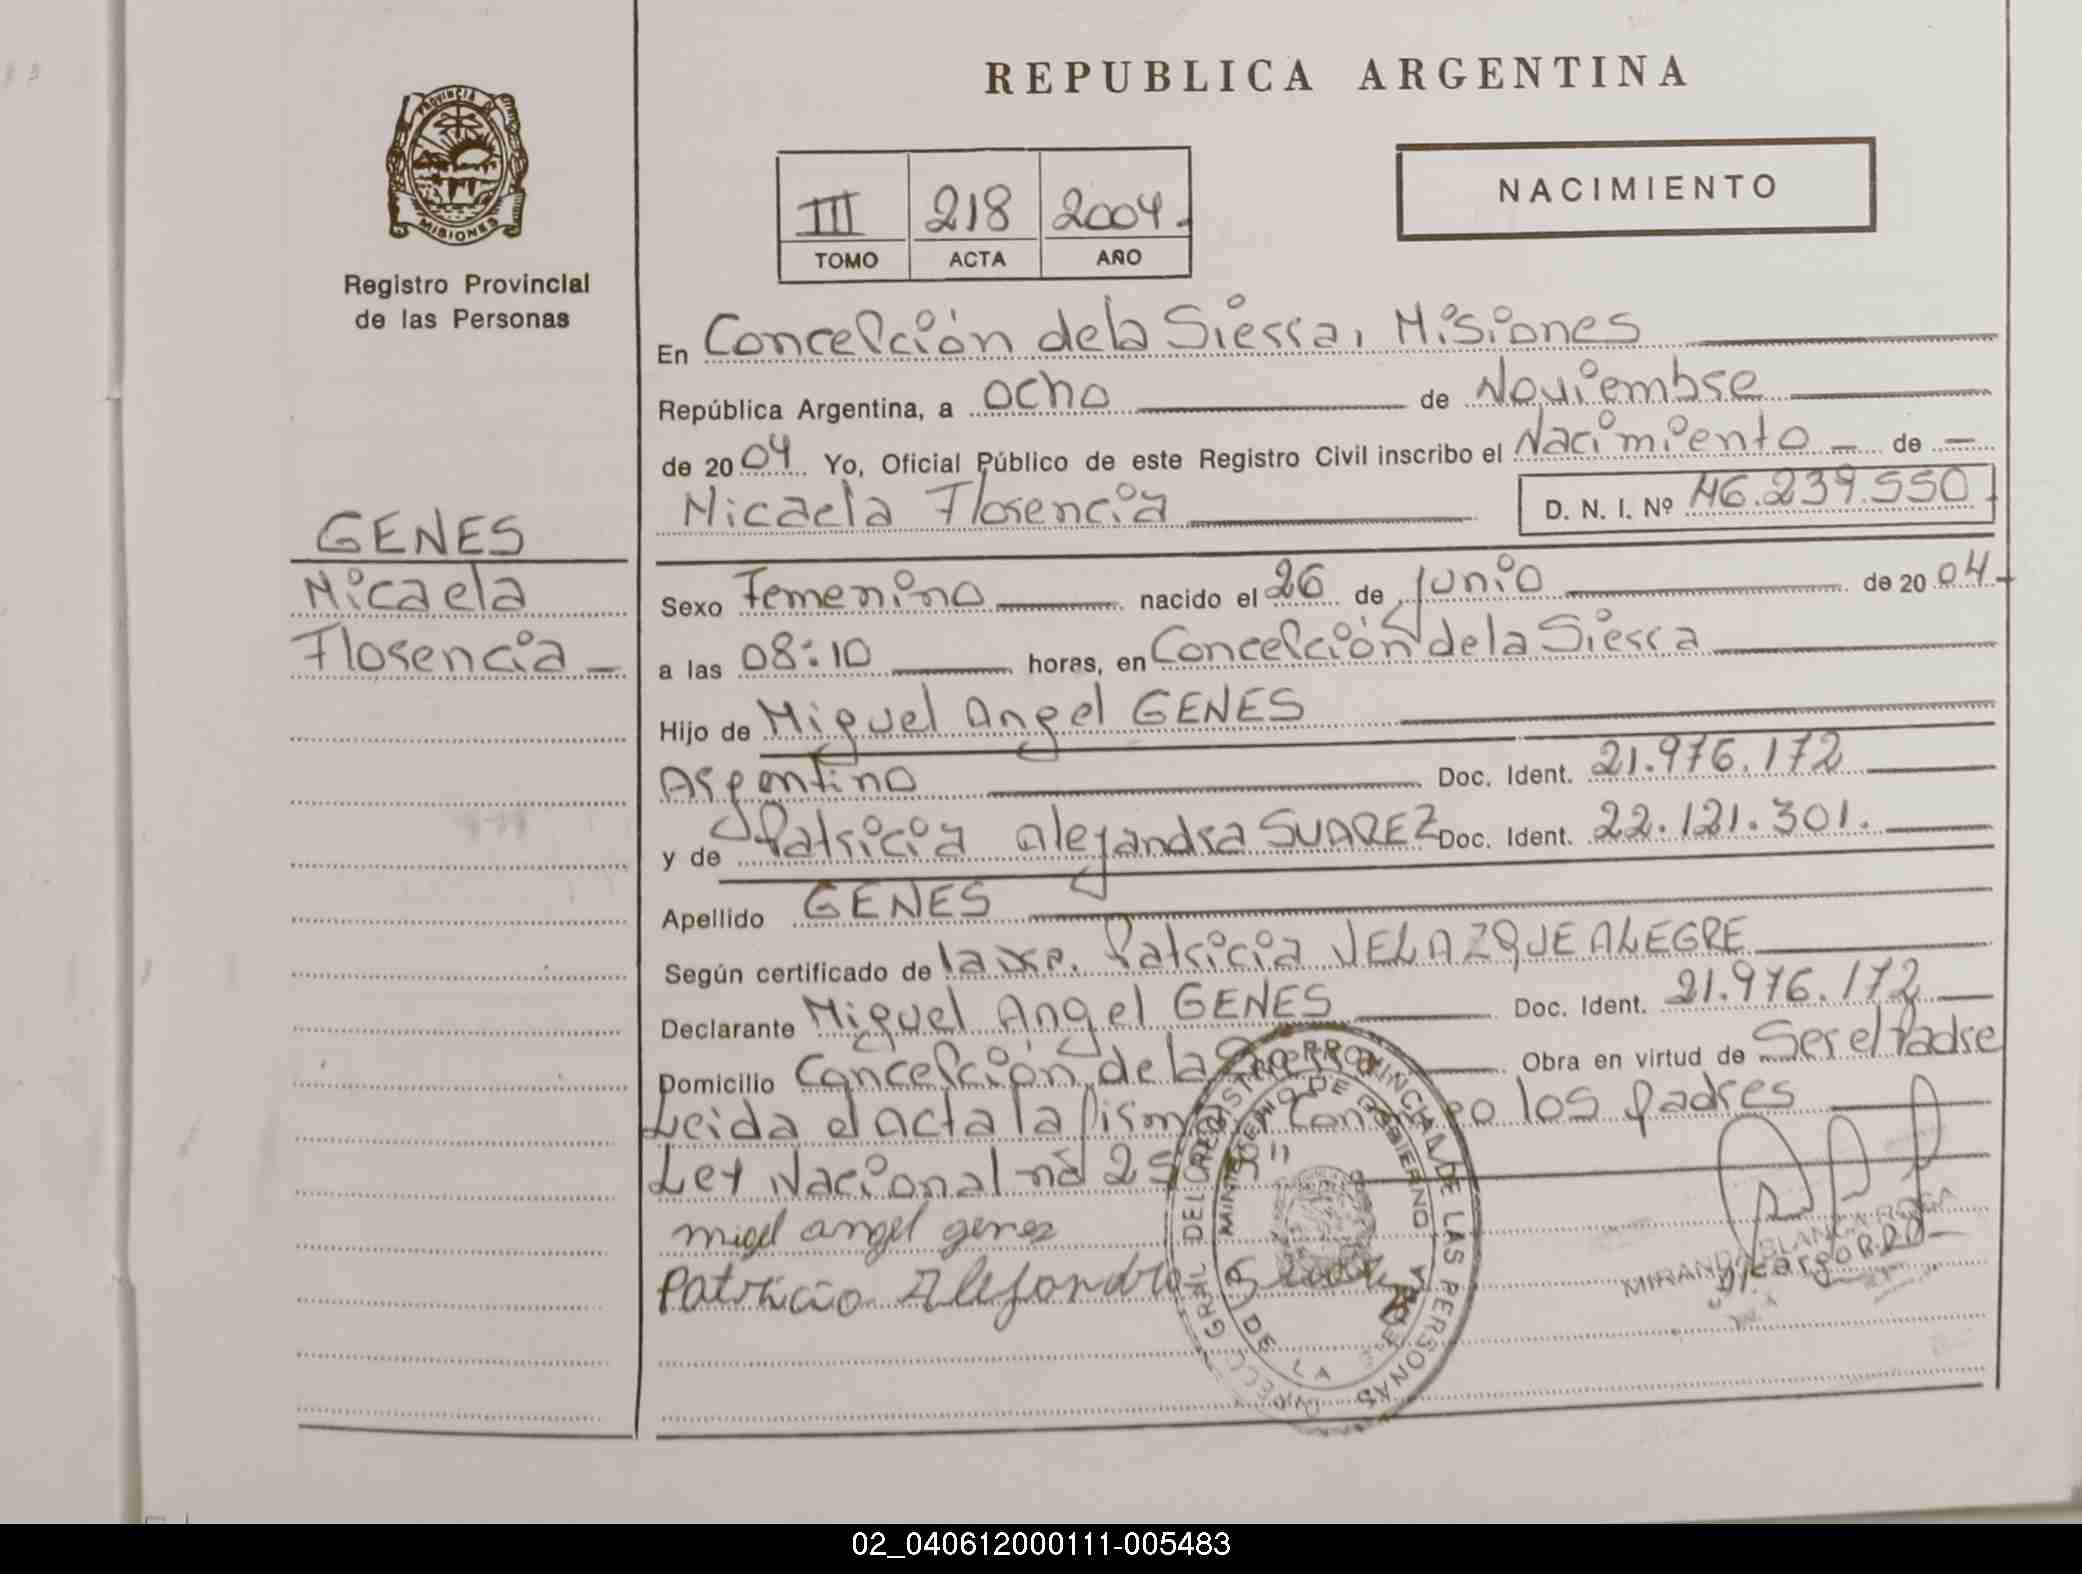 REPUBLICA ARGENTINA
PROVINCIA DE
MISIONES
Registro Provincial
de las Personas
III 218 2004.
TOMO ACTA AÑO
NACIMIENTO
En Concepción de la Sierra, Misiones
República Argentina, a ocho de Noviembre
de 2004 Yo, Oficial Público de este Registro Civil inscribo el Nacimiento - de -
Micaela Florencia D. N. I. Nº 46.239.550
GENES
Micaela
Florencia -
Sexo Femenino nacido el 26 de junio de 2004.
a las 08:10 horas, en Concepción de la Sierra
Hijo de Miguel Angel GENES
Argentino Doc. Ident. 21.976.172
y de Patricia Alejandra SUAREZ Doc. Ident. 22.121.301.
Apellido GENES
Según certificado de la Patricia VELAZQUE ALEGRE
Declarante Miguel Angel GENES Doc. Ident. 21.976.172
Domicilio Concepción de la Obra en virtud de Ser el Padre
Leida el acta la los padres
Ley Nacional
migel angel genes
Patricia Alejandra
MIRANDA BLANCA ROSA
DEL REGISTRO PROVINCIAL DE LAS PERSONAS
MINISTERIO DE GOBIERNO
02_040612000111-005483